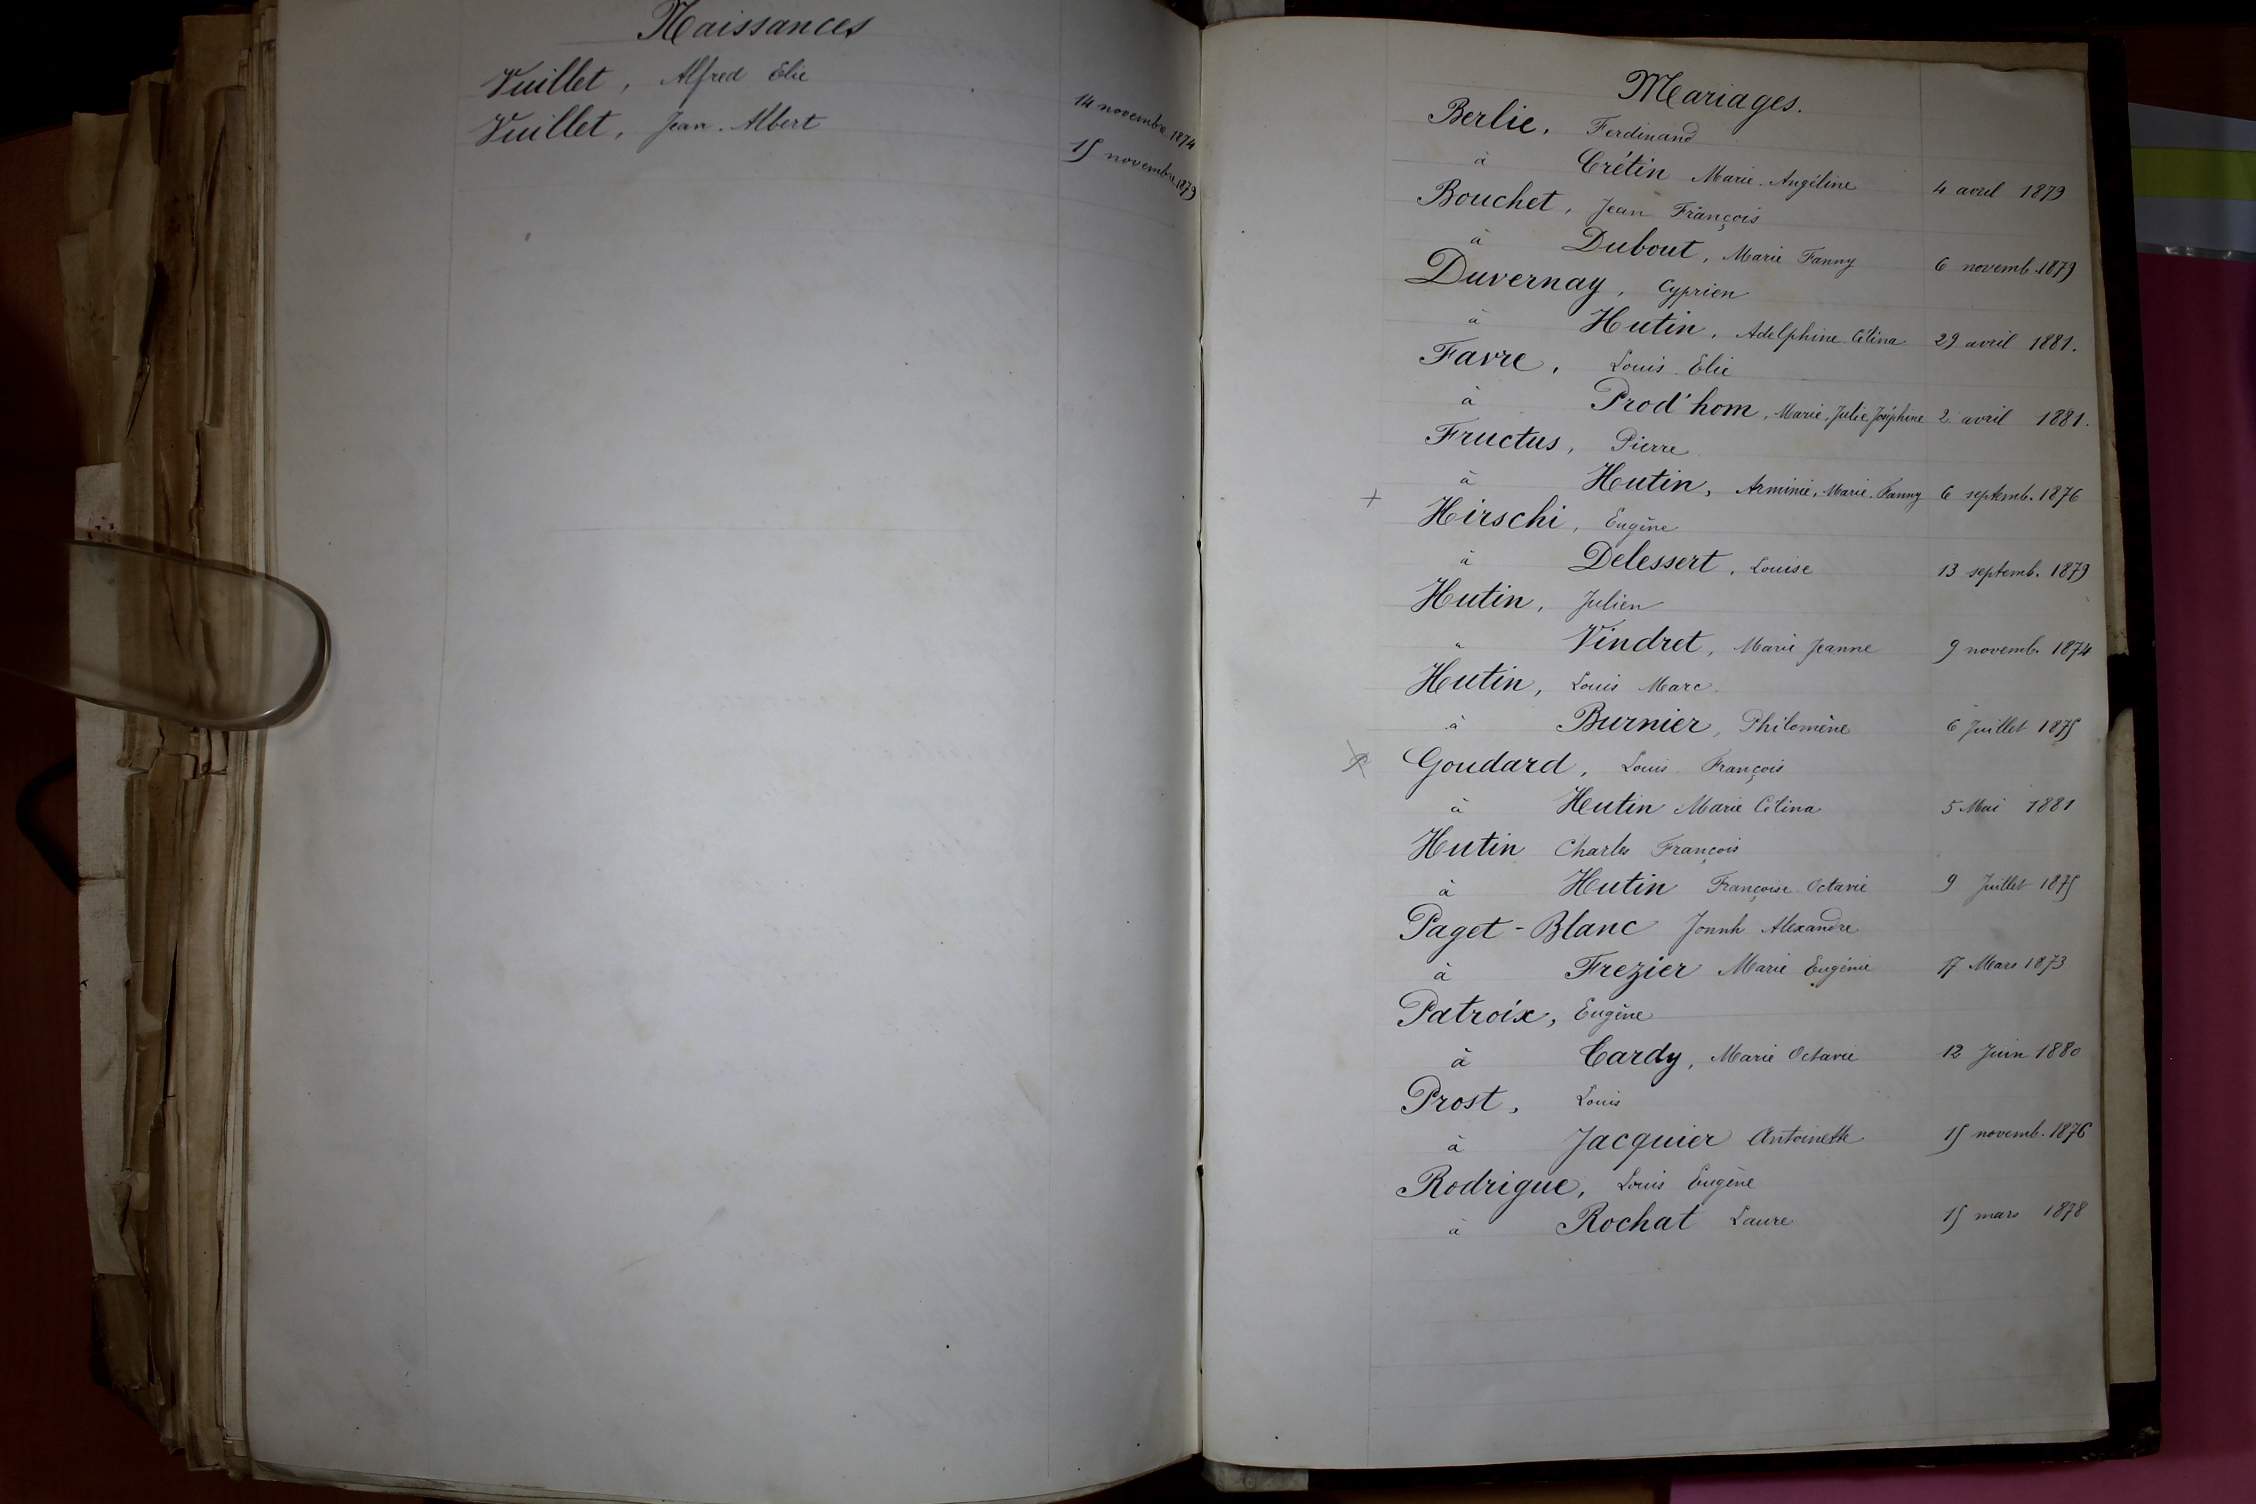 Naissances
Vuillet, Alfred Elie 14 novembre 1874
Vuillet, Jean Albert 15 novembre 1879
Mariages.
Berlie, Ferdinand
à Crétin Marie Angéline 4 avril 1879
Bouchet, Jean François
à Dubout, Marie Fanny 6 novemb. 1879
Duvernay, Cyprien
à Hutin, Adelphine Célina 29 avril 1881.
Favre, Louis Elie
à Prod'hom, Marie, Julie, Joséphine 2 avril 1881.
Fructus, Pierre
à Hutin, Arminie, Marie Fanny 6 septemb. 1876
Hirschi, Eugène
à Delessert, Louise 13 septemb. 1879
Hutin, Julien
" Vindret, Marie Jeanne 9 novemb. 1874
Hutin, Louis Marc
à Burnier, Philomène 6 Juillet 1875
Goudard, Louis François
à Hutin Marie Célina 5 Mai 1881
Hutin Charles François
à Hutin Françoise Octavie 9 Juillet 1875
Paget-Blanc Alexandre
à Frezier Marie Eugénie 17 Mars 1873
Patroix, Eugène
à Cardy, Marie Octavie 12 Juin 1880
Prost, Louis
à Jacquier Antoinette 15 novemb. 1876
Rodrigue, Louis Eugène
à Rochat Laure 15 mars 1878